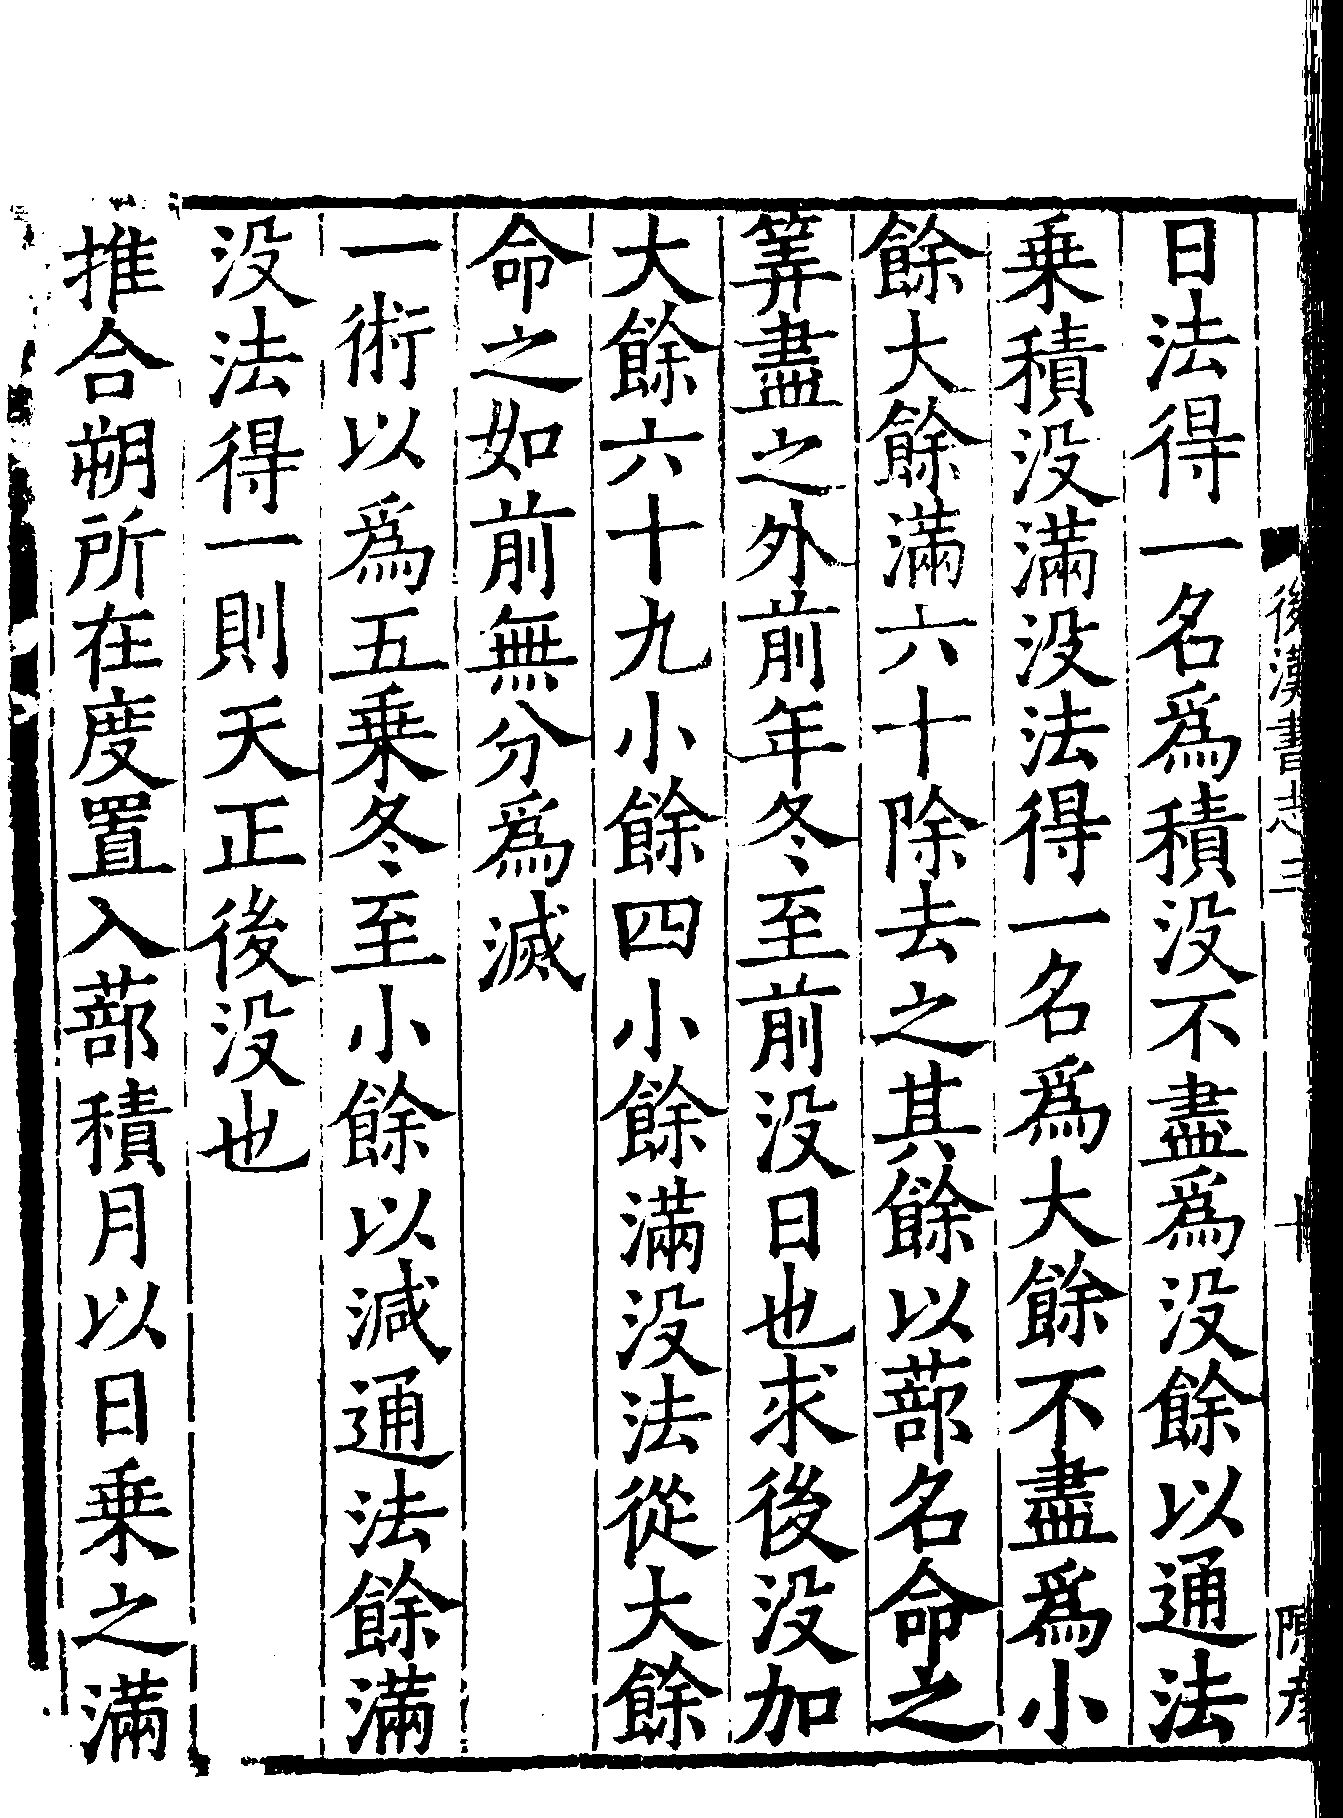 後漢書志三
十
日法得一名爲積没不盡爲没餘以通法
乗積没滿没法得一名爲大餘不盡爲小
餘大餘滿六十除去之其餘以蔀名命之
筭盡之外前年冬至前没日也求後没加
大餘六十九小餘四小餘滿没法從大餘
命之如前無分爲滅
一術以爲五乗冬至小餘以減通法餘滿
没法得一則天正後没也
推合朔所在度置入蔀積月以日乗之滿